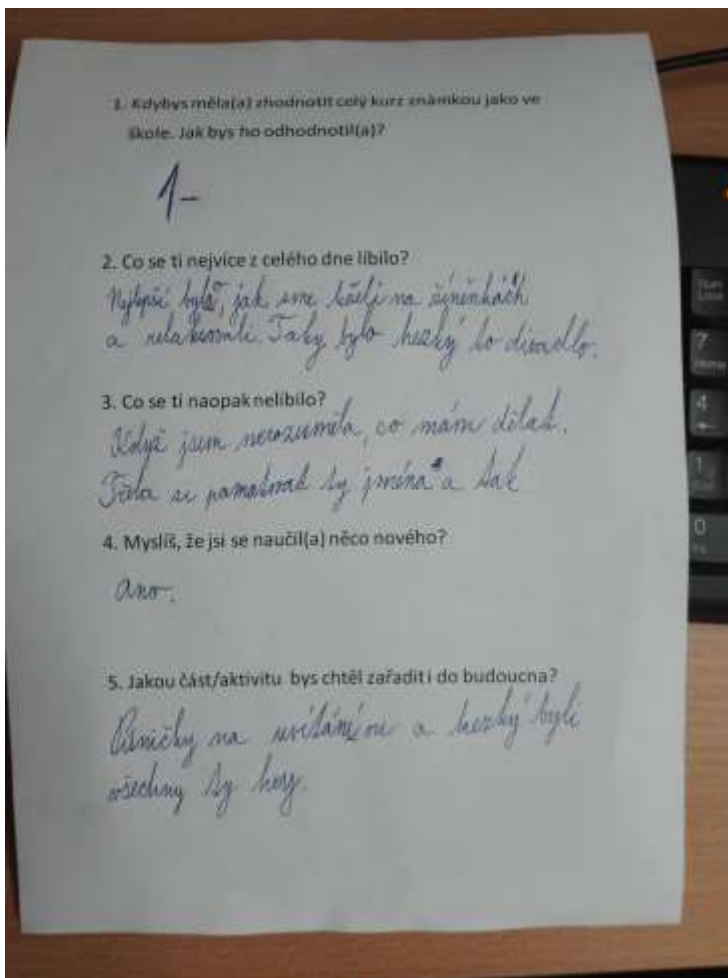 1. Kdybys měla(a) zhodnotit celý kurz známkou jako ve
škole. Jak bys ho odhodnotil(a)?
1-
2. Co se ti nejvíce z celého dne líbilo?
Nejlepší bylo, jak sme leželi na žíněnkách
a relaxovali. Taky bylo hezký to divadlo.
3. Co se ti naopak nelíbilo?
Když jsem nerozuměla, co mám dělat.
Třeba si pamatovat ty jména a tak
4. Myslíš, že jsi se naučil(a) něco nového?
Ano.
5. Jakou část/aktivitu bys chtěl zařadit i do budoucna?
Písničky na uvítanou a hezký byli
všechny ty hry.
7
4
1
0